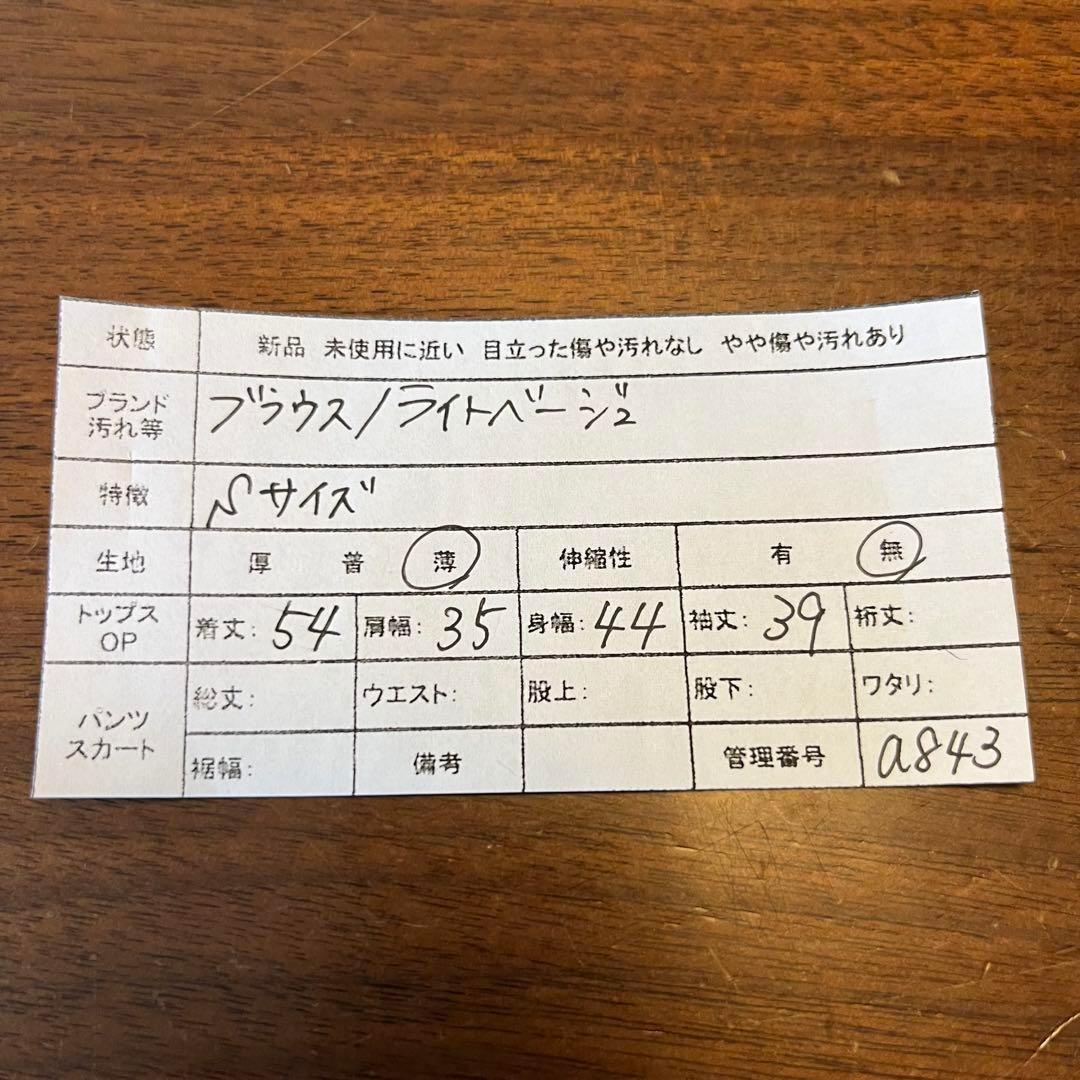 状態 新品 未使用に近い 目立った傷や汚れなし やや傷や汚れあり
ブランド
汚れ等 ブラウス/ライトベージュ
特徴 Sサイズ
生地 厚 普 薄 伸縮性 有 無
トップス
OP 着丈: 54 肩幅: 35 身幅: 44 袖丈: 39 裄丈:
パンツ
スカート 総丈: ウエスト: 股上: 股下: ワタリ:
裾幅: 備考 管理番号 a843